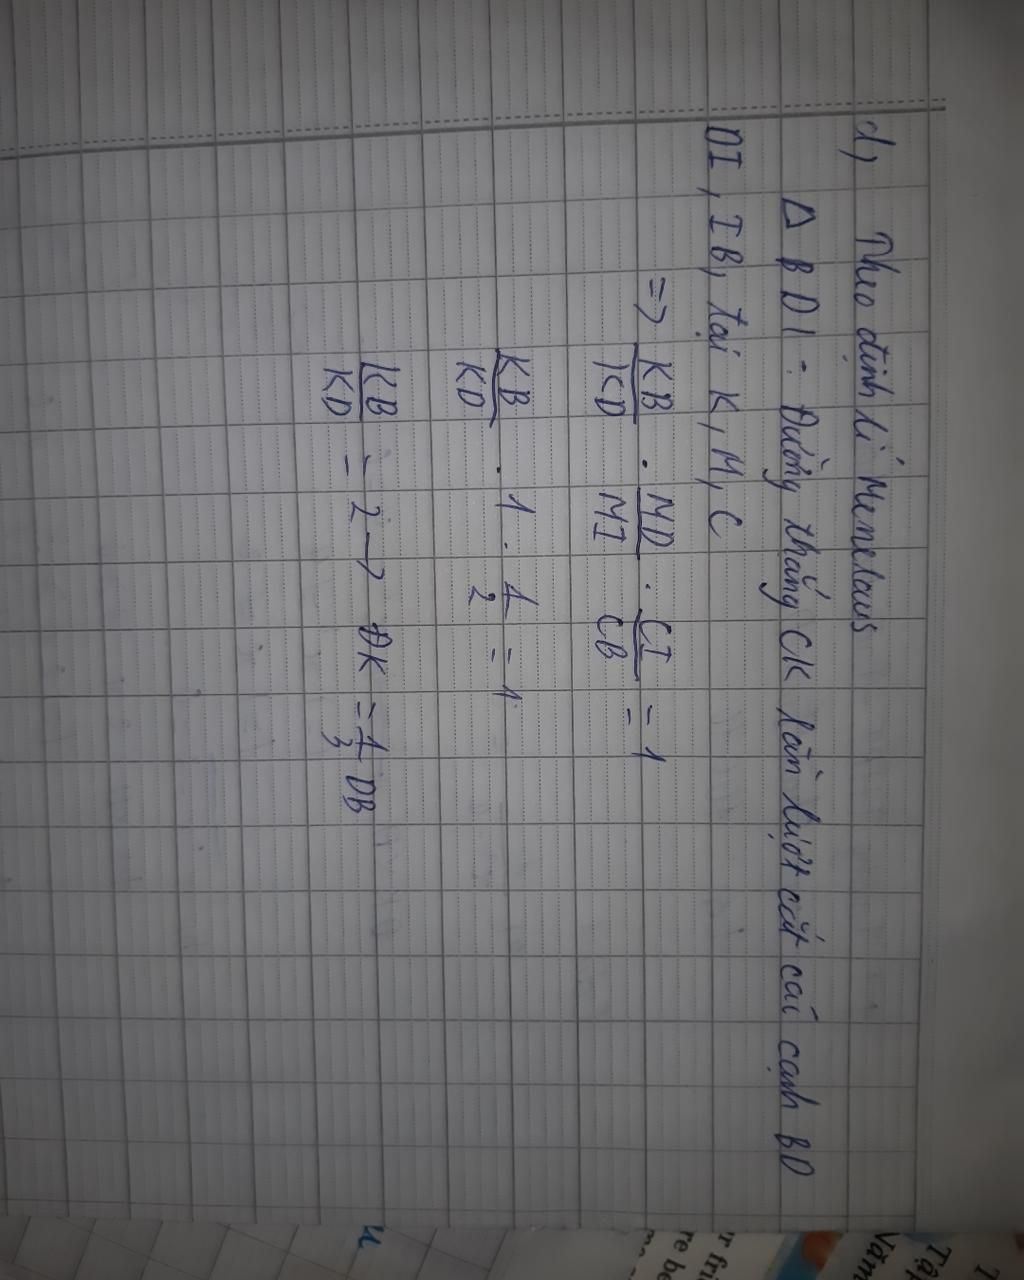 d, Theo định lí Menelaus
Δ BDI : Đường thẳng CK lần lượt cắt các cạnh BD
DI, IB, tại K, M, C
=> KB/KD . MD/MI . CI/CB = 1
KB/KD . 1 . 1/2 = 1
KB/KD = 2 → DK = 1/3 DB